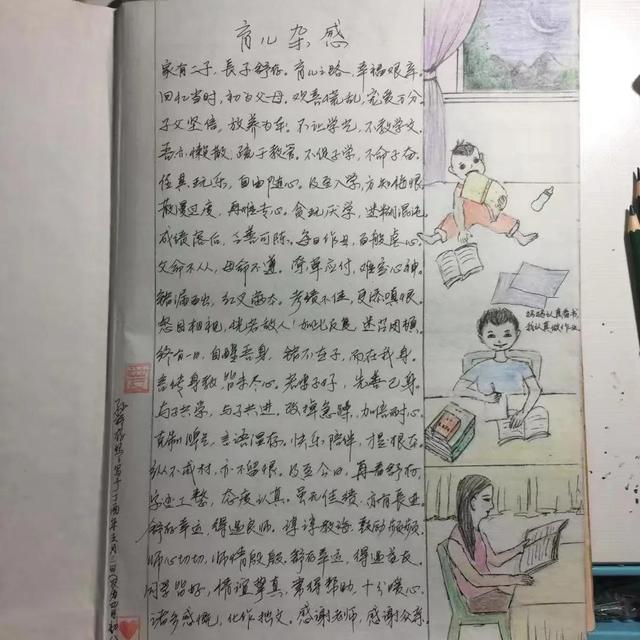 育儿杂感
家有二子，長子舒存。育儿之路，幸福艰辛。
回忆当时，初为父母。欢喜慌乱，宠爱万分。
子父坚信，放养为乐。不让学先，不教学文。
吾亦懒散，疏于教管。不促子学，不命子奋。
任其玩乐，自由随心。及至入学，方知悔恨。
散漫过度，再难专心。贪玩厌学，迷糊混沌。
成绩落后，乏善可陈。每日作业，百般虐心。
父命不从，母命不遵。简单应付，难安心神。
错漏百出，红叉满本。考绩不佳，更添嗔恨。
怒目相视，恍若敌人！如此反复，迷茫困顿。
终有一日，自醒吾身，错不在子，而在我身。
言传身教，皆未尽心。若求子好，先善己身。
与子共学，与子共进。改掉急躁，加倍耐心。
克制脾气，言语温存。快乐陪伴，才是根本。
纵不成材，亦不留恨。及至今日，再看舒存，
字迹工整，态度认真。虽无佳绩，亦有長进。
舒存幸运，得遇良师。谆谆教诲，鼓励频频。
师心切切，师情殷殷。舒存幸运，得遇益友。
同学皆好，情谊挚真。常得帮助，十分暖心。
诸多感慨，化作拙文。感谢老师，感谢众亲。
妈妈认真看书
我认真做作业
写于丁酉年五月